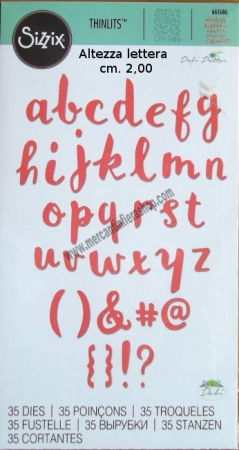 Sizzix
THINLITS™
661686
Debi Potter
Altezza lettera
cm. 2,00
abcdefg
hijklmn
opqrst
uvwxyz
()&#@
{}!?
www.mercantinfierashop.com
Debi
35 DIES | 35 POINÇONS | 35 TROQUELES
35 FUSTELLE | 35 ВЫРУБКИ | 35 STANZEN
35 CORTANTES